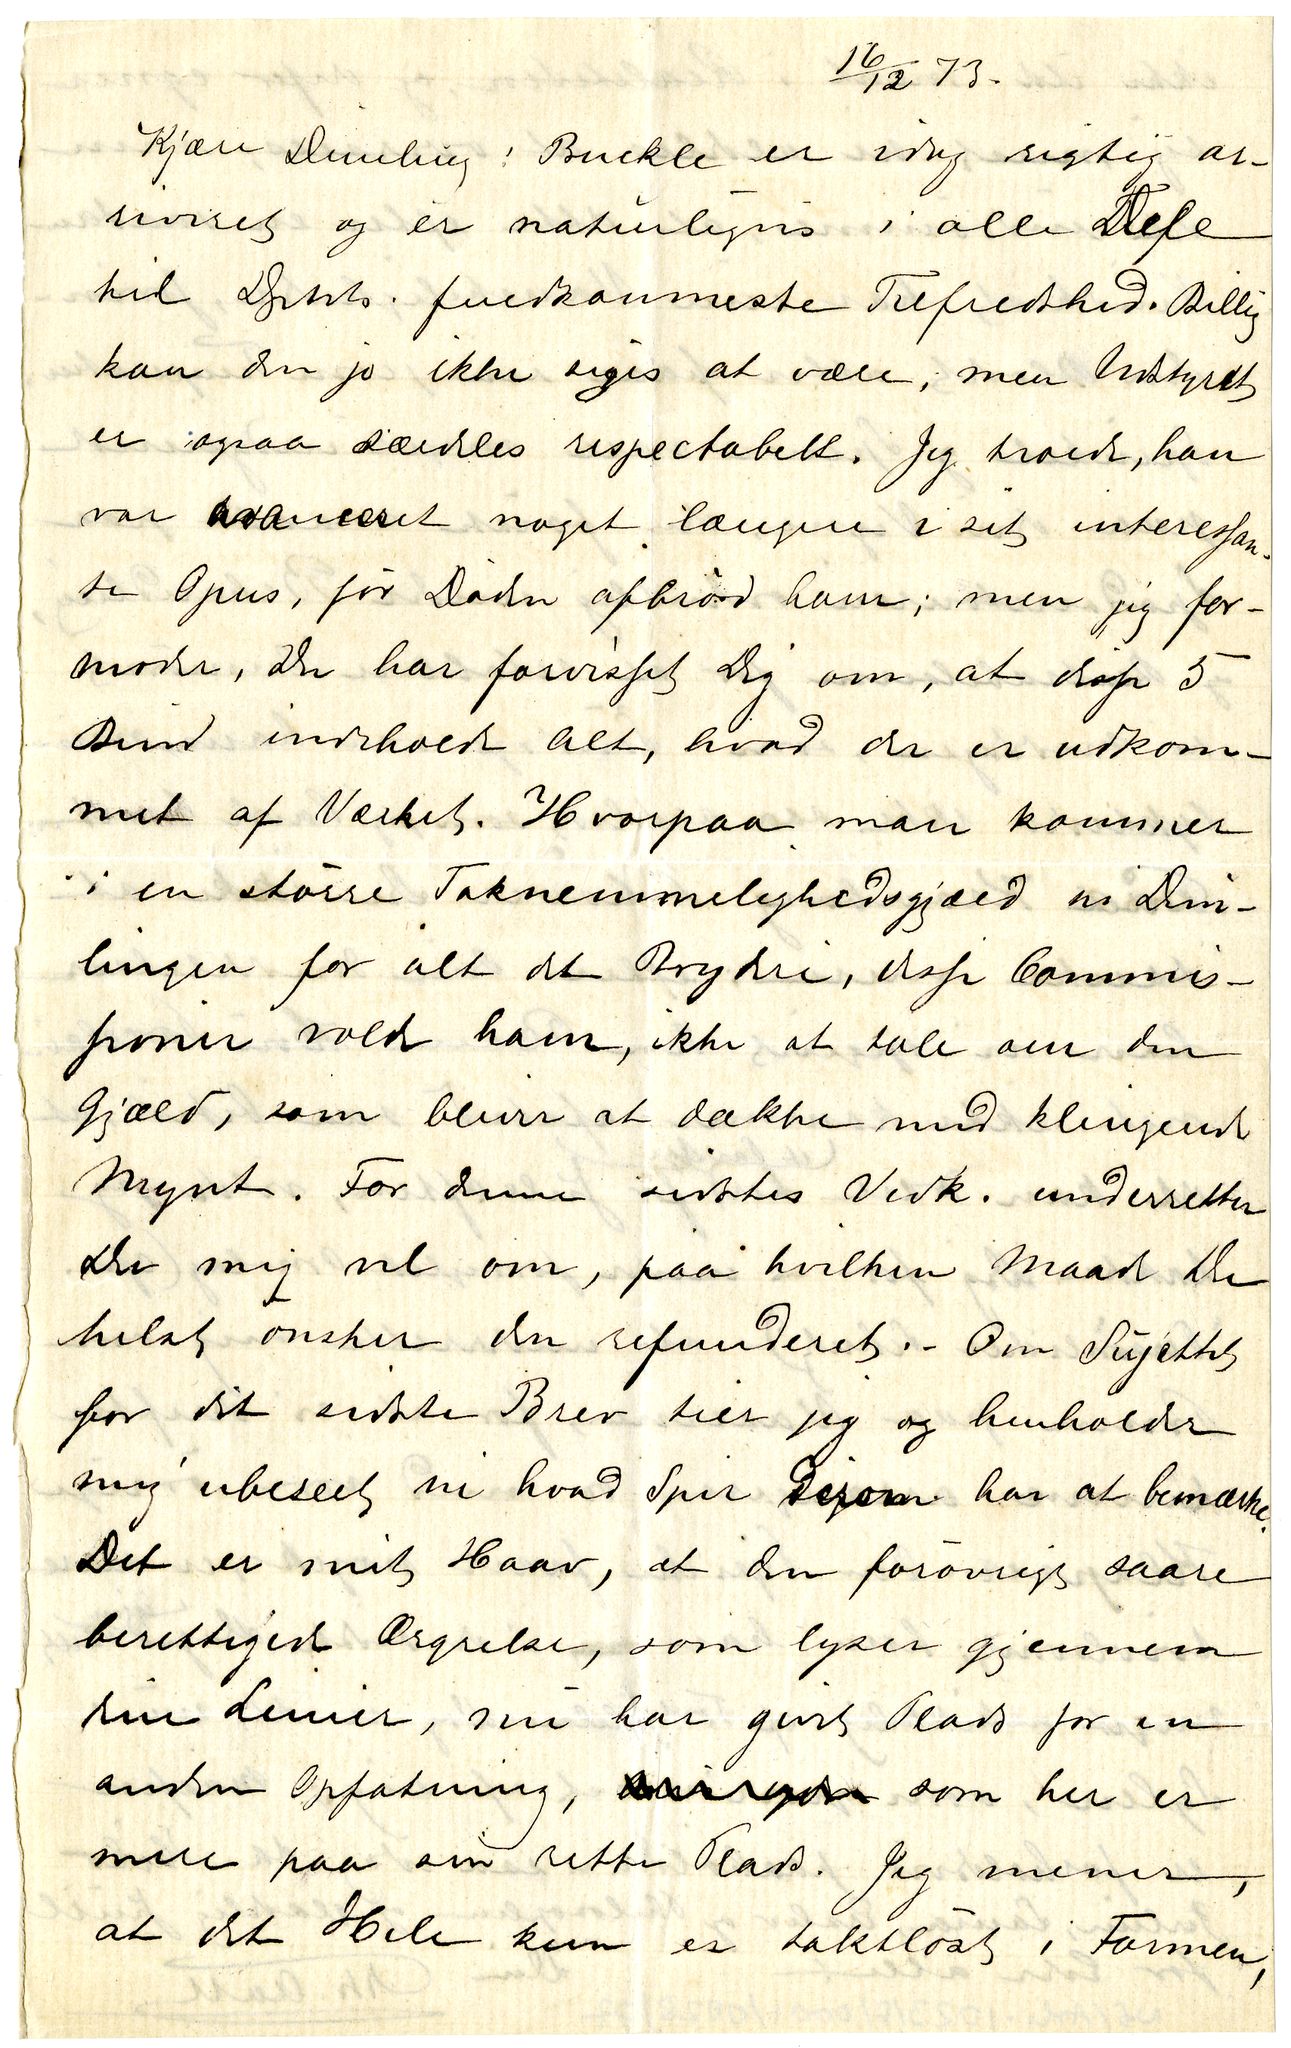 16/12 73.
Kjære Dimling! Buckle er idag rigtig ar-
riveret og er naturligvis i alle Dele
til fuldkomneste Tilfredshed. Billig
kan den jo ikke siges at være, men Udstyret
er ogsaa særdeles respectabelt. Jeg troede, han
var avanceret noget længere i sit interessan-
te Opus, før Døden afbrød ham; men jeg for-
moder, Du har forvisset Dig om, at disse 5
Bind indeholde Alt, hvad der er udkom-
met af Værket. Hvorpaa man kommer
i en større Taknemmelighedsgjæld til Dim-
lingen for alt det Bryderi, disse Commis-
sioner volde ham, ikke at tale om den
Gjæld, som bliver at dække med klingende
Mynt. For denne sidstes Vedk. underretter
Du mig vel om, paa hvilken Maade Du
helst ønsker den refunderet. - Om Sujettet
for dit sidste Brev tier jeg og henholder
mig ubeseet til hvad Spir derom har at bemærke.
Det er mit Haab, at den forøvrigt saare
berettigede Ærgrelse, som lyser gjennem
dine Linier, nu har givet Plads for en
anden Opfatning, som her er
mere paa sin rette Plads. Jeg mener,
at det Hele kun er taktløst i Formen,